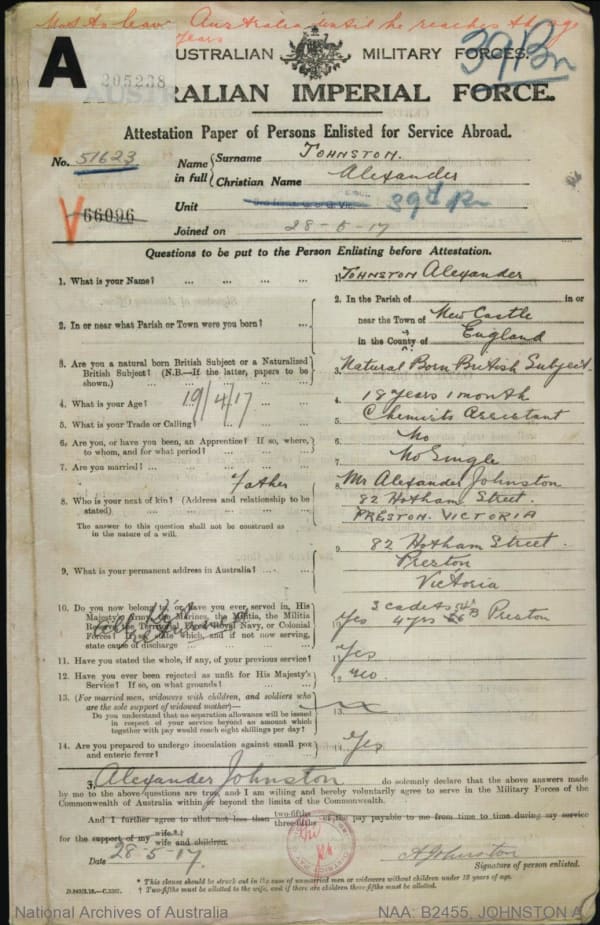 Not to leave Australia until he reaches the age
years
AUSTRALIAN MILITARY FORCES.
39 Bn
A
205238
AUSTRALIAN IMPERIAL FORCE.
Attestation Paper of Persons Enlisted for Service Abroad.
No. 51623
Name in full
Surname JOHNSTON.
Christian Name Alexander
66096
Unit 39th Bn
Joined on 28-5-17
Questions to be put to the Person Enlisting before Attestation.
1. What is your Name? ... ... ... ... 1. JOHNSTON Alexander
2. In or near what Parish or Town were you born? ... 2. In the Parish of in or
near the Town of New Castle
in the County of England
3. Are you a natural born British Subject or a Naturalized
British Subject? (N.B.—If the latter, papers to be
shown.) ... 3. Natural Born British Subject.
4. What is your Age? 19/4/17 4. 18 years 1 month
5. What is your Trade or Calling? 5. Chemists Assistant
6. Are you, or have you been, an Apprentice? If so, where,
to whom, and for what period? ... 6. No
7. Are you married? ... 7. No Single
Father
8. Who is your next of kin? (Address and relationship to be
stated) ... 8. Mr Alexander Johnston
82 Hotham Street.
PRESTON. VICTORIA
The answer to this question shall not be construed as
in the nature of a will.
9. What is your permanent address in Australia? ... 9. 82 Hotham Street.
Preston
Victoria
10. Do you now belong to, or have you ever served in, His
Majesty's Army, the Marines, the Militia, the Militia
Reserve, the Territorial Force, Royal Navy, or Colonial
Forces? If so, state which, and if not now serving,
state cause of discharge 10. Yes 3 cadets
4 yrs Preston
11. Have you stated the whole, if any, of your previous service? 11. Yes
12. Have you ever been rejected as unfit for His Majesty's
Service? If so, on what grounds? ... 12. No.
13. (For married men, widowers with children, and soldiers who
are the sole support of widowed mother)—
Do you understand that no separation allowance will be issued
in respect of your service beyond an amount which
together with pay would reach eight shillings per day? 13.
14. Are you prepared to undergo inoculation against small pox
and enteric fever? ... 14. Yes
3, Alexander Johnston do solemnly declare that the above answers made
by me to the above questions are true, and I am willing and hereby voluntarily agree to serve in the Military Forces of the
Commonwealth of Australia within or beyond the limits of the Commonwealth.
And I further agree to allot not less than two-fifths three-fifths of the pay payable to me from time to time during my service
for the support of my wife.*† wife and children.
Date 28-5-17.
A Johnston
Signature of person enlisted.
* This clause should be struck out in the case of unmarried men or widowers without children under 18 years of age.
† Two-fifths must be allotted to the wife, and if there are children three-fifths must be allotted.
National Archives of Australia
NAA: B2455, JOHNSTON A